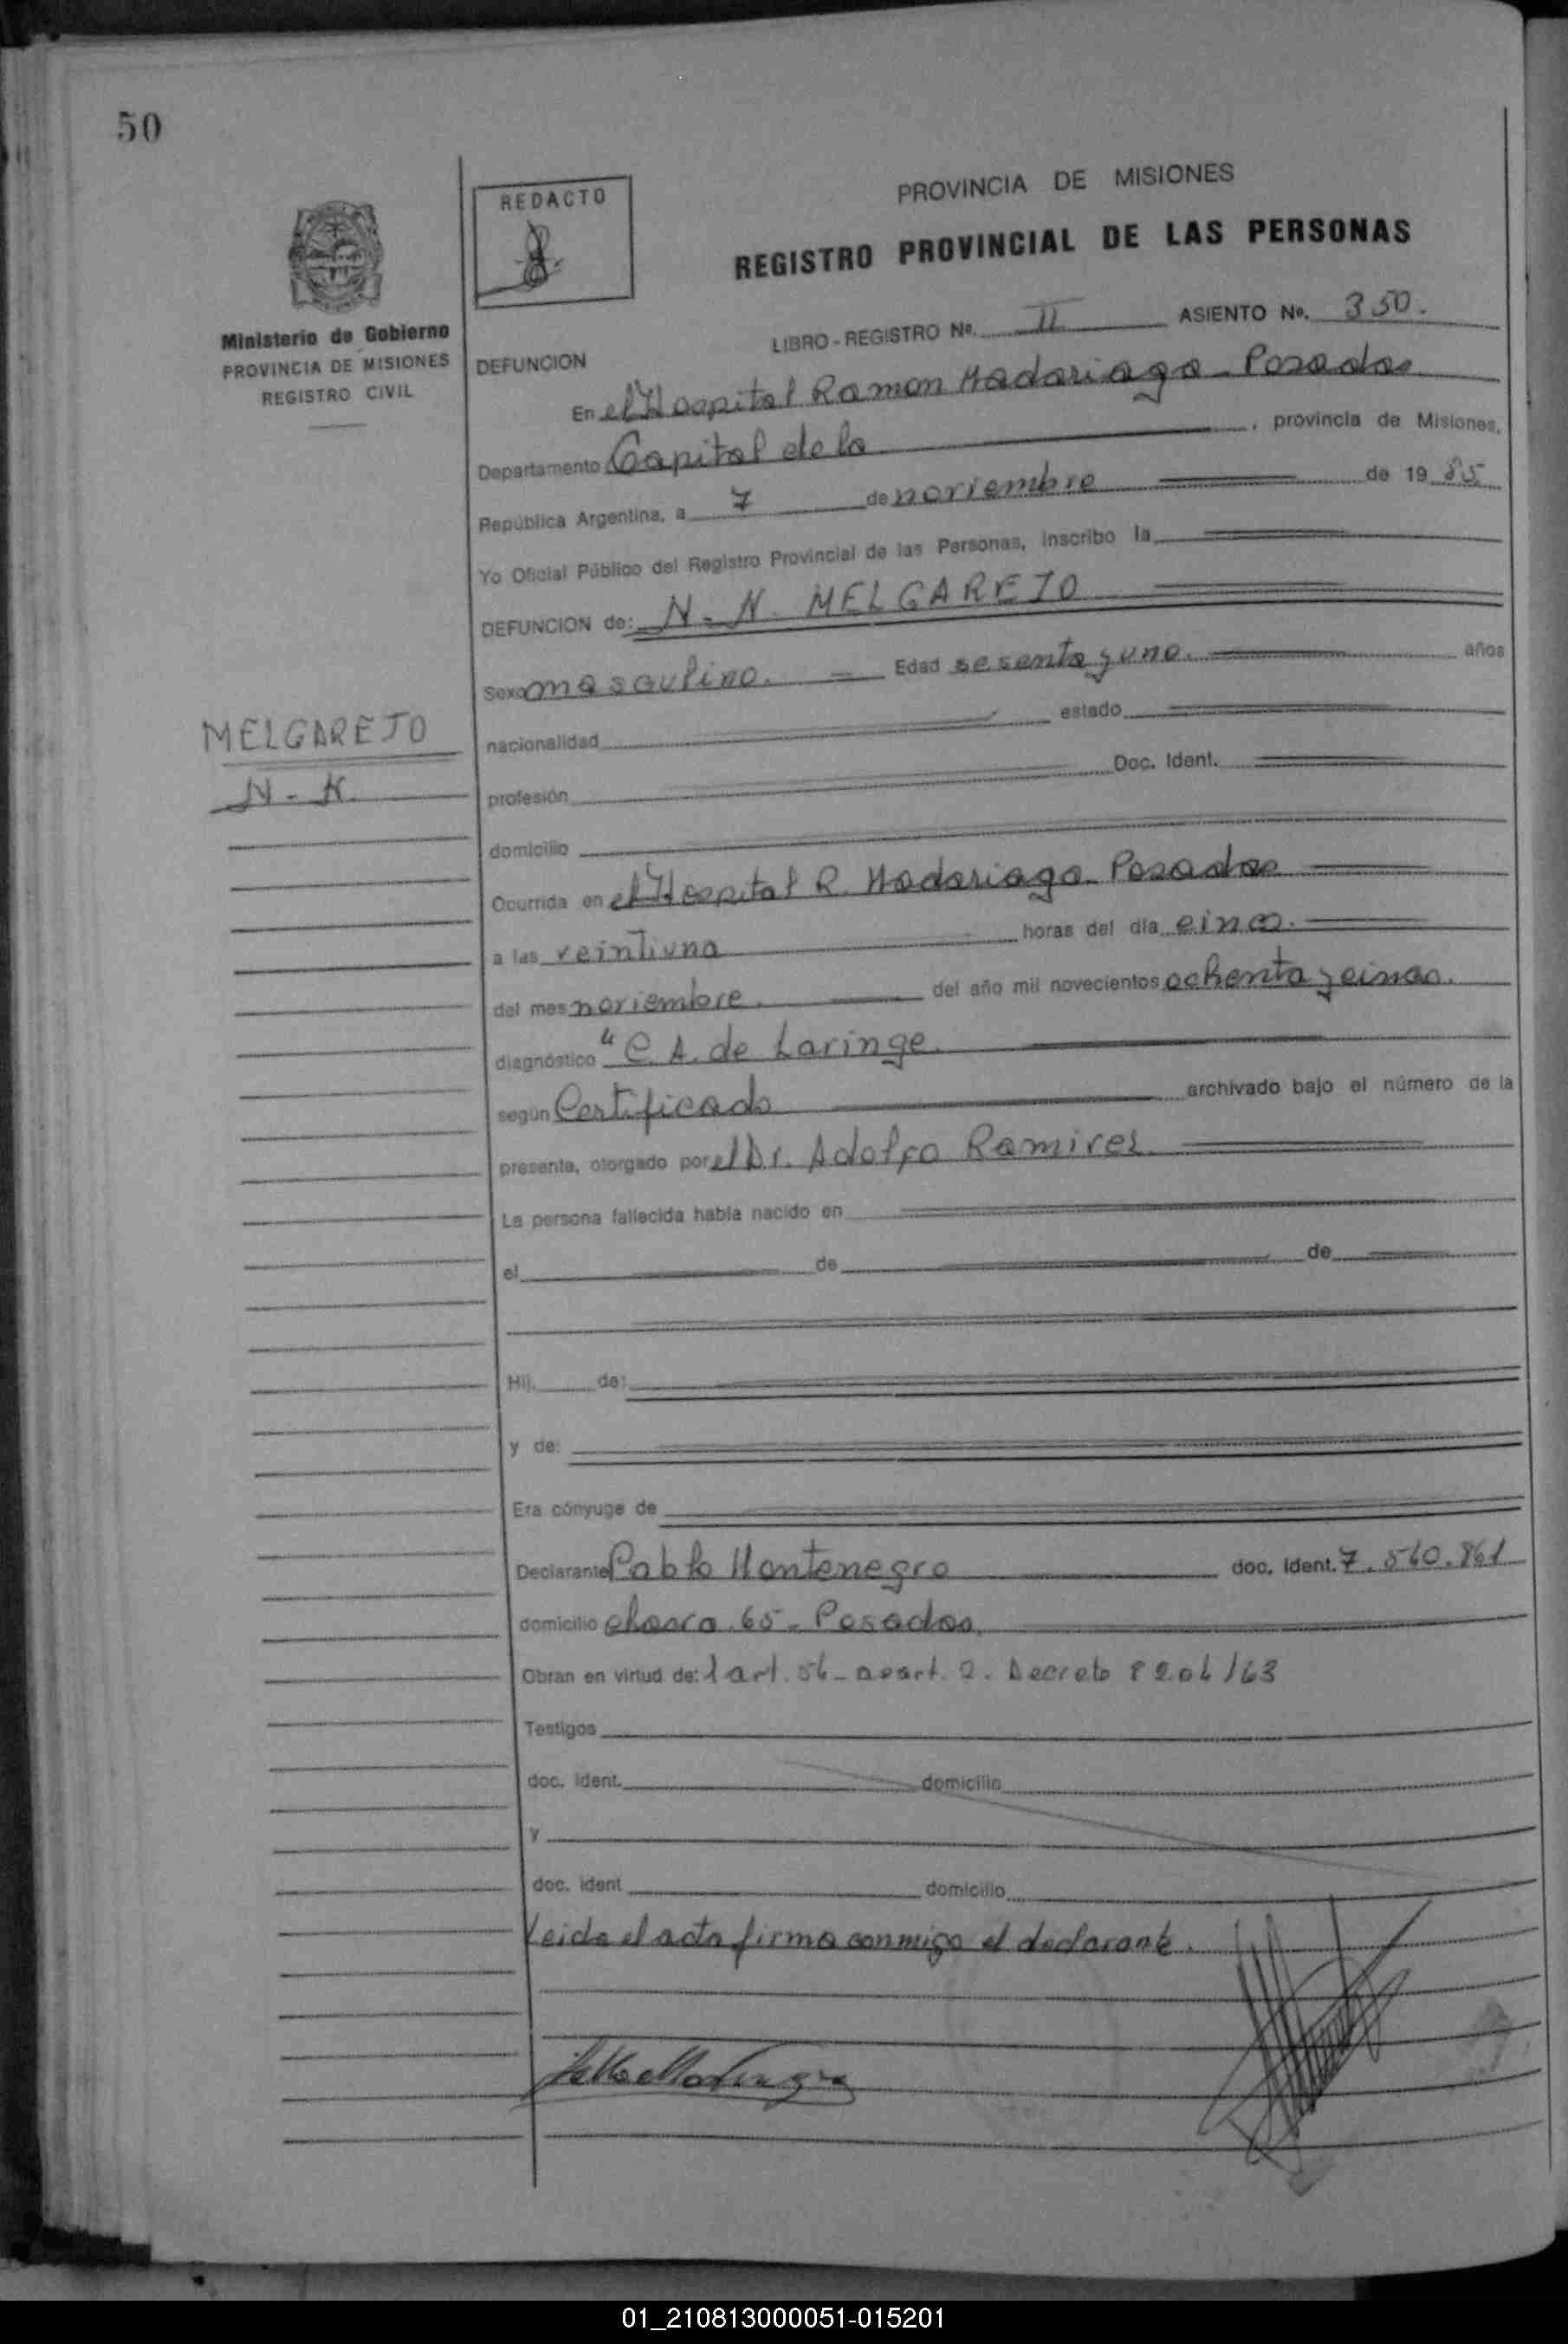 50
REDACTO
PROVINCIA DE MISIONES
REGISTRO PROVINCIAL DE LAS PERSONAS
Ministerio de Gobierno
PROVINCIA DE MISIONES
REGISTRO CIVIL
LIBRO - REGISTRO Nº. II ASIENTO Nº. 350.
DEFUNCION
En el Hospital Ramon Madariaga - Posadas
Departamento Capital de la , provincia de Misiones,
República Argentina, a 7 de noviembre de 19 85
Yo Oficial Público del Registro Provincial de las Personas, inscribo la
DEFUNCION de: N - N - MELGAREJO
Sexo masculino. Edad sesenta y uno. años
MELGAREJO
N - N.
nacionalidad estado
profesión Doc. Ident.
domicilio
Ocurrida en el Hospital R. Madariaga - Posadas
a las veintiuna horas del día cinco.
del mes noviembre. del año mil novecientos ochenta y cinco.
diagnóstico " C. A. de Laringe.
según Certificado archivado bajo el número de la
presente, otorgado por el Dr. Adolfo Ramirez.
La persona fallecida había nacido en
el de de
Hij. de:
y de:
Era cónyuge de
Declarante Pablo Montenegro doc. Ident. 7.540.861
domicilio chacra 65 - Posadas.
Obran en virtud de: 1 art. 54 - apart. 2. Decreto 8204/63
Testigos
doc. Ident. domicilio
y
doc. ident domicilio
Leida el acta firma conmigo el declarante.
01_210813000051-015201